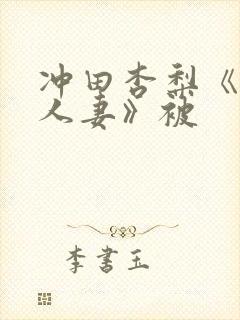 冲田杏梨《
人妻》被
李书玉